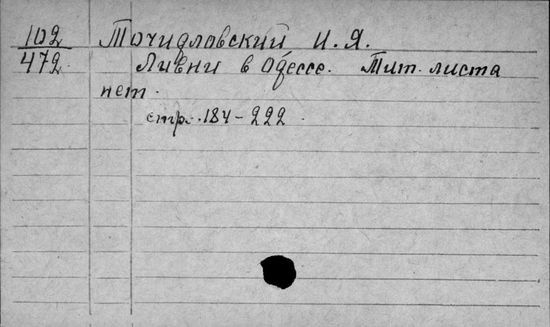 102 Точидловский И. Я.
472 Ливни в Одессе. Тит. листа
нет.
стр. 184-222.